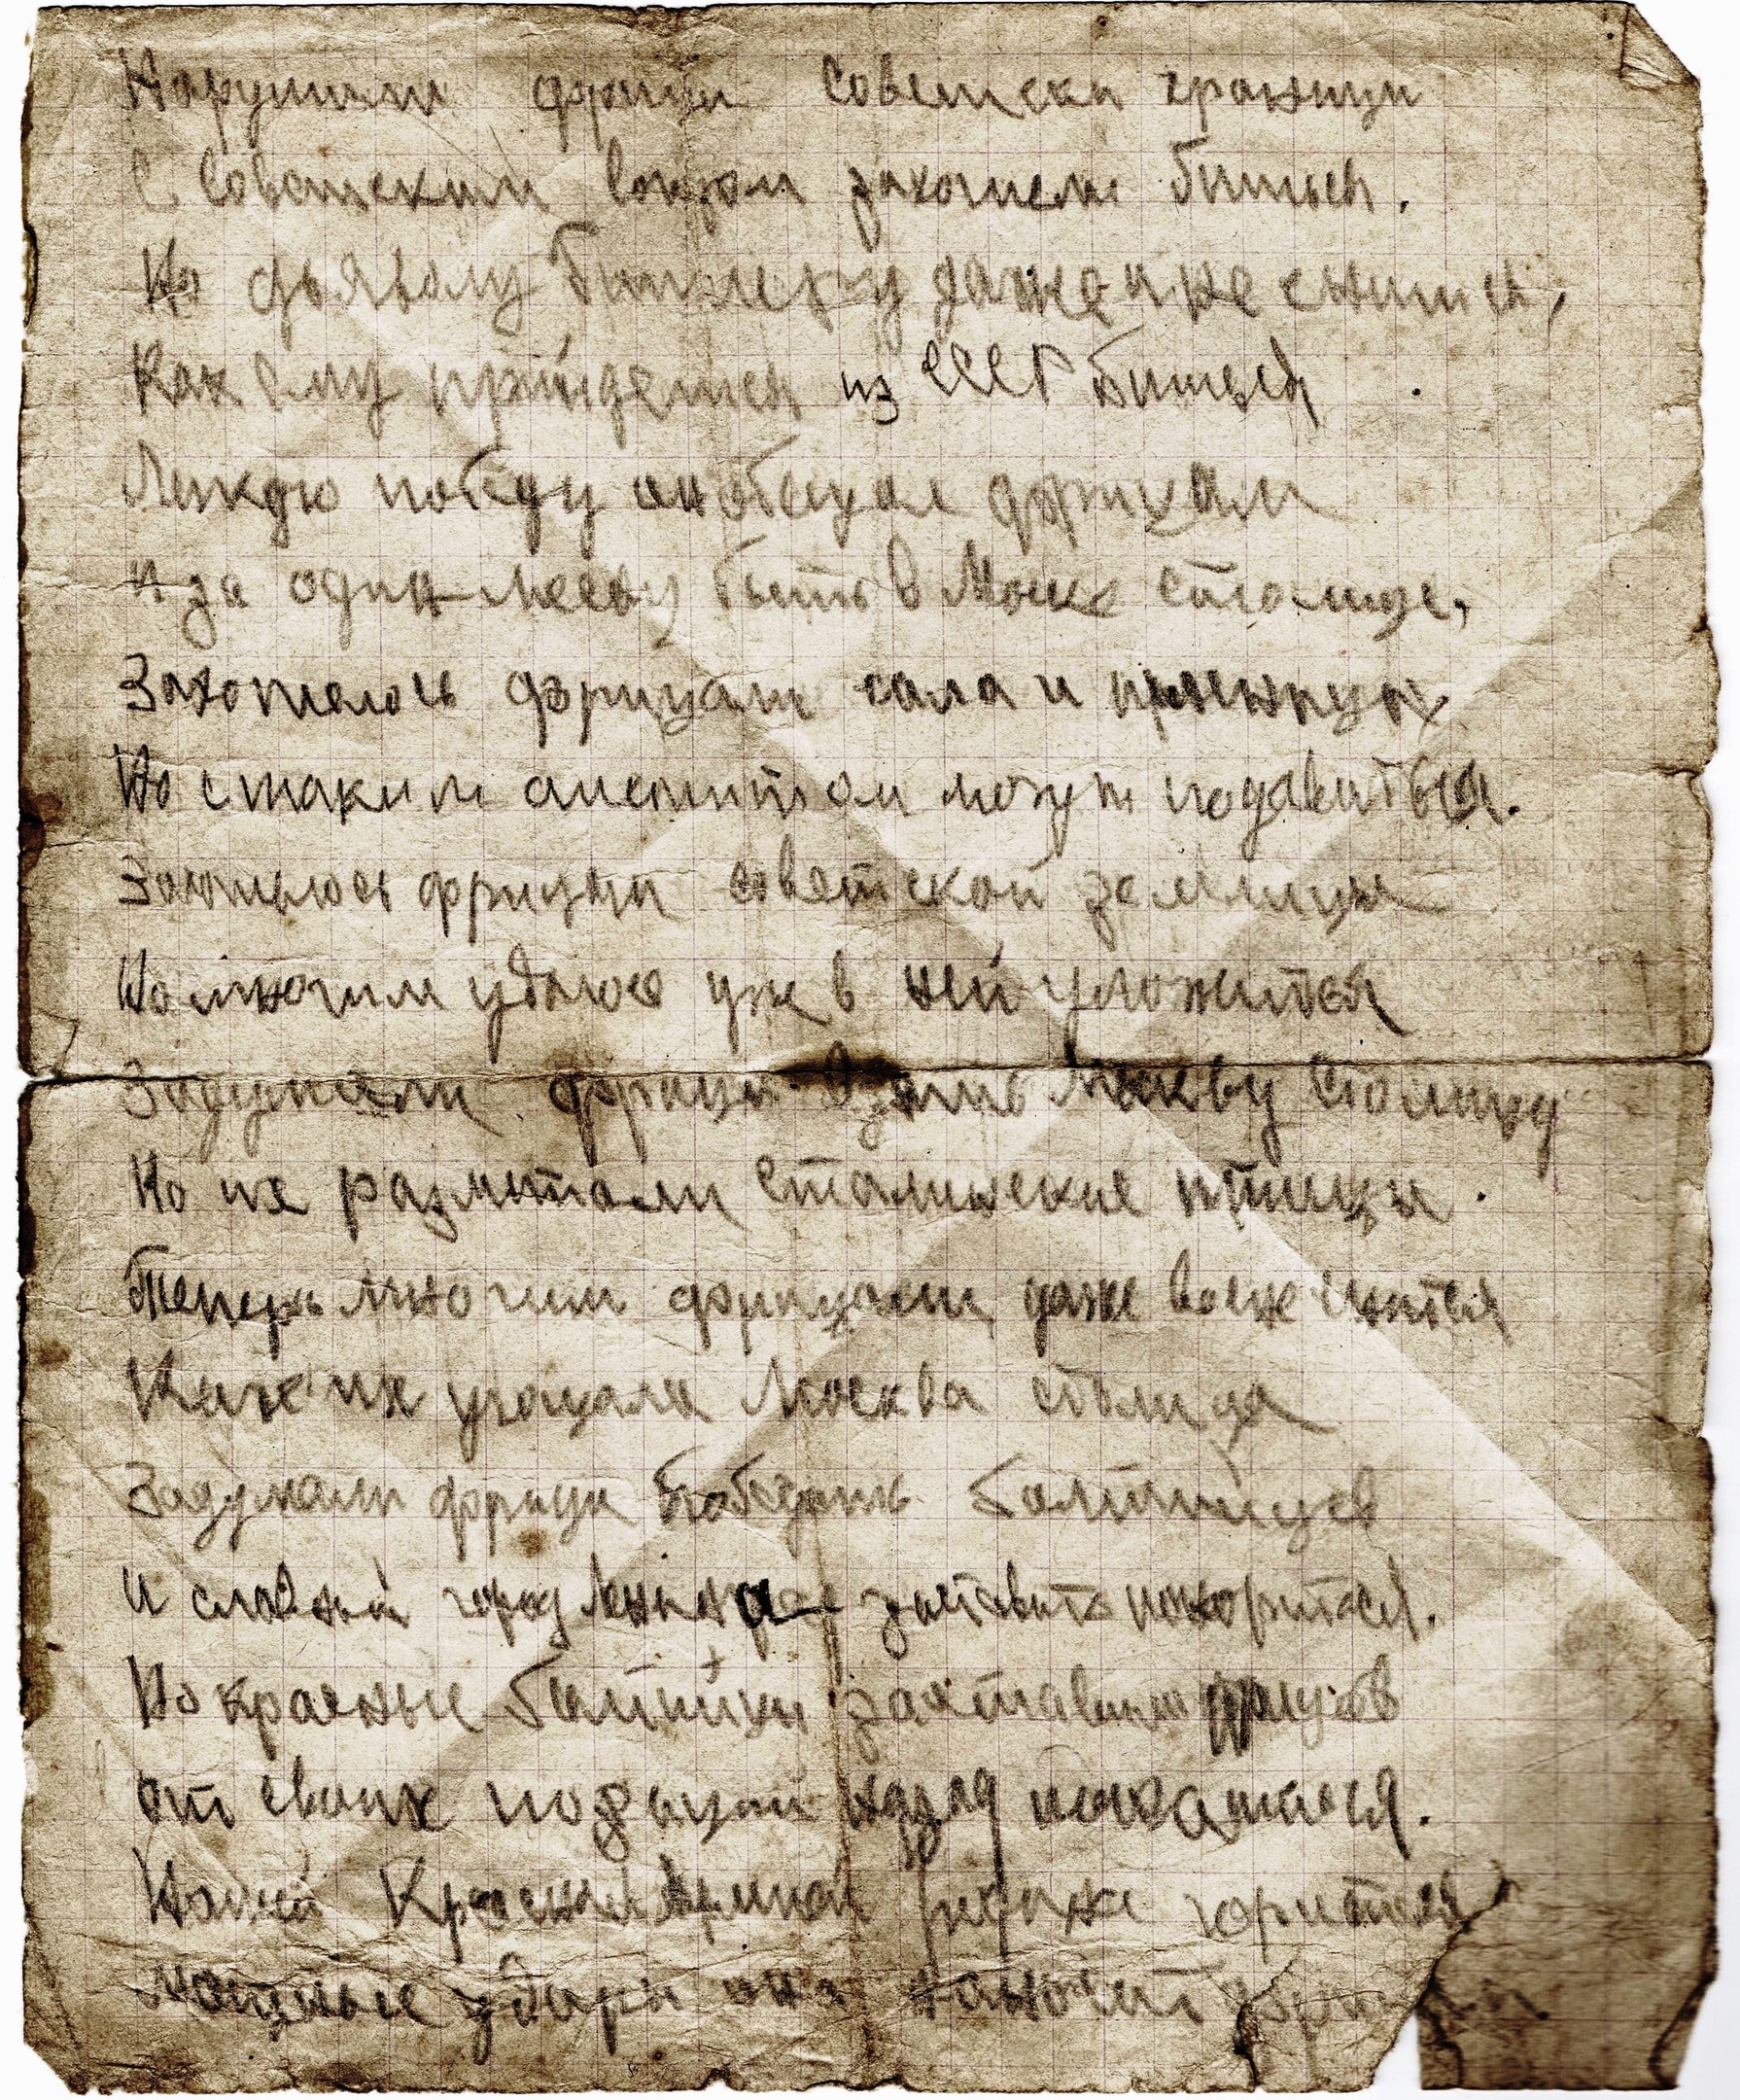 Нарушили фрици Советски граници
С Советским захотели биться.
Но дьяволу даже и не снится,
Как ему прийдется из СССР биться
победу он обещал фрицам
и за один быть в Моске столице,
Захотелось фрицам сала и
Но с таким апетитом могут подавиться.
фрицам советской землицы
Но многим удалось уж в ней уложится
Задумали фрици взять Москву столицу
Но их разметали Сталинские птицы.
Теперь многим фрицам даже снится
Как их угощала Москва столица
Задумали фрицы балтийцев
и славный город заставить покорится.
Но красные балтийци заставили фрицов
от своих позиций назад покатится.
Нашей Красной Армией гордится
Мощные удары она наносит